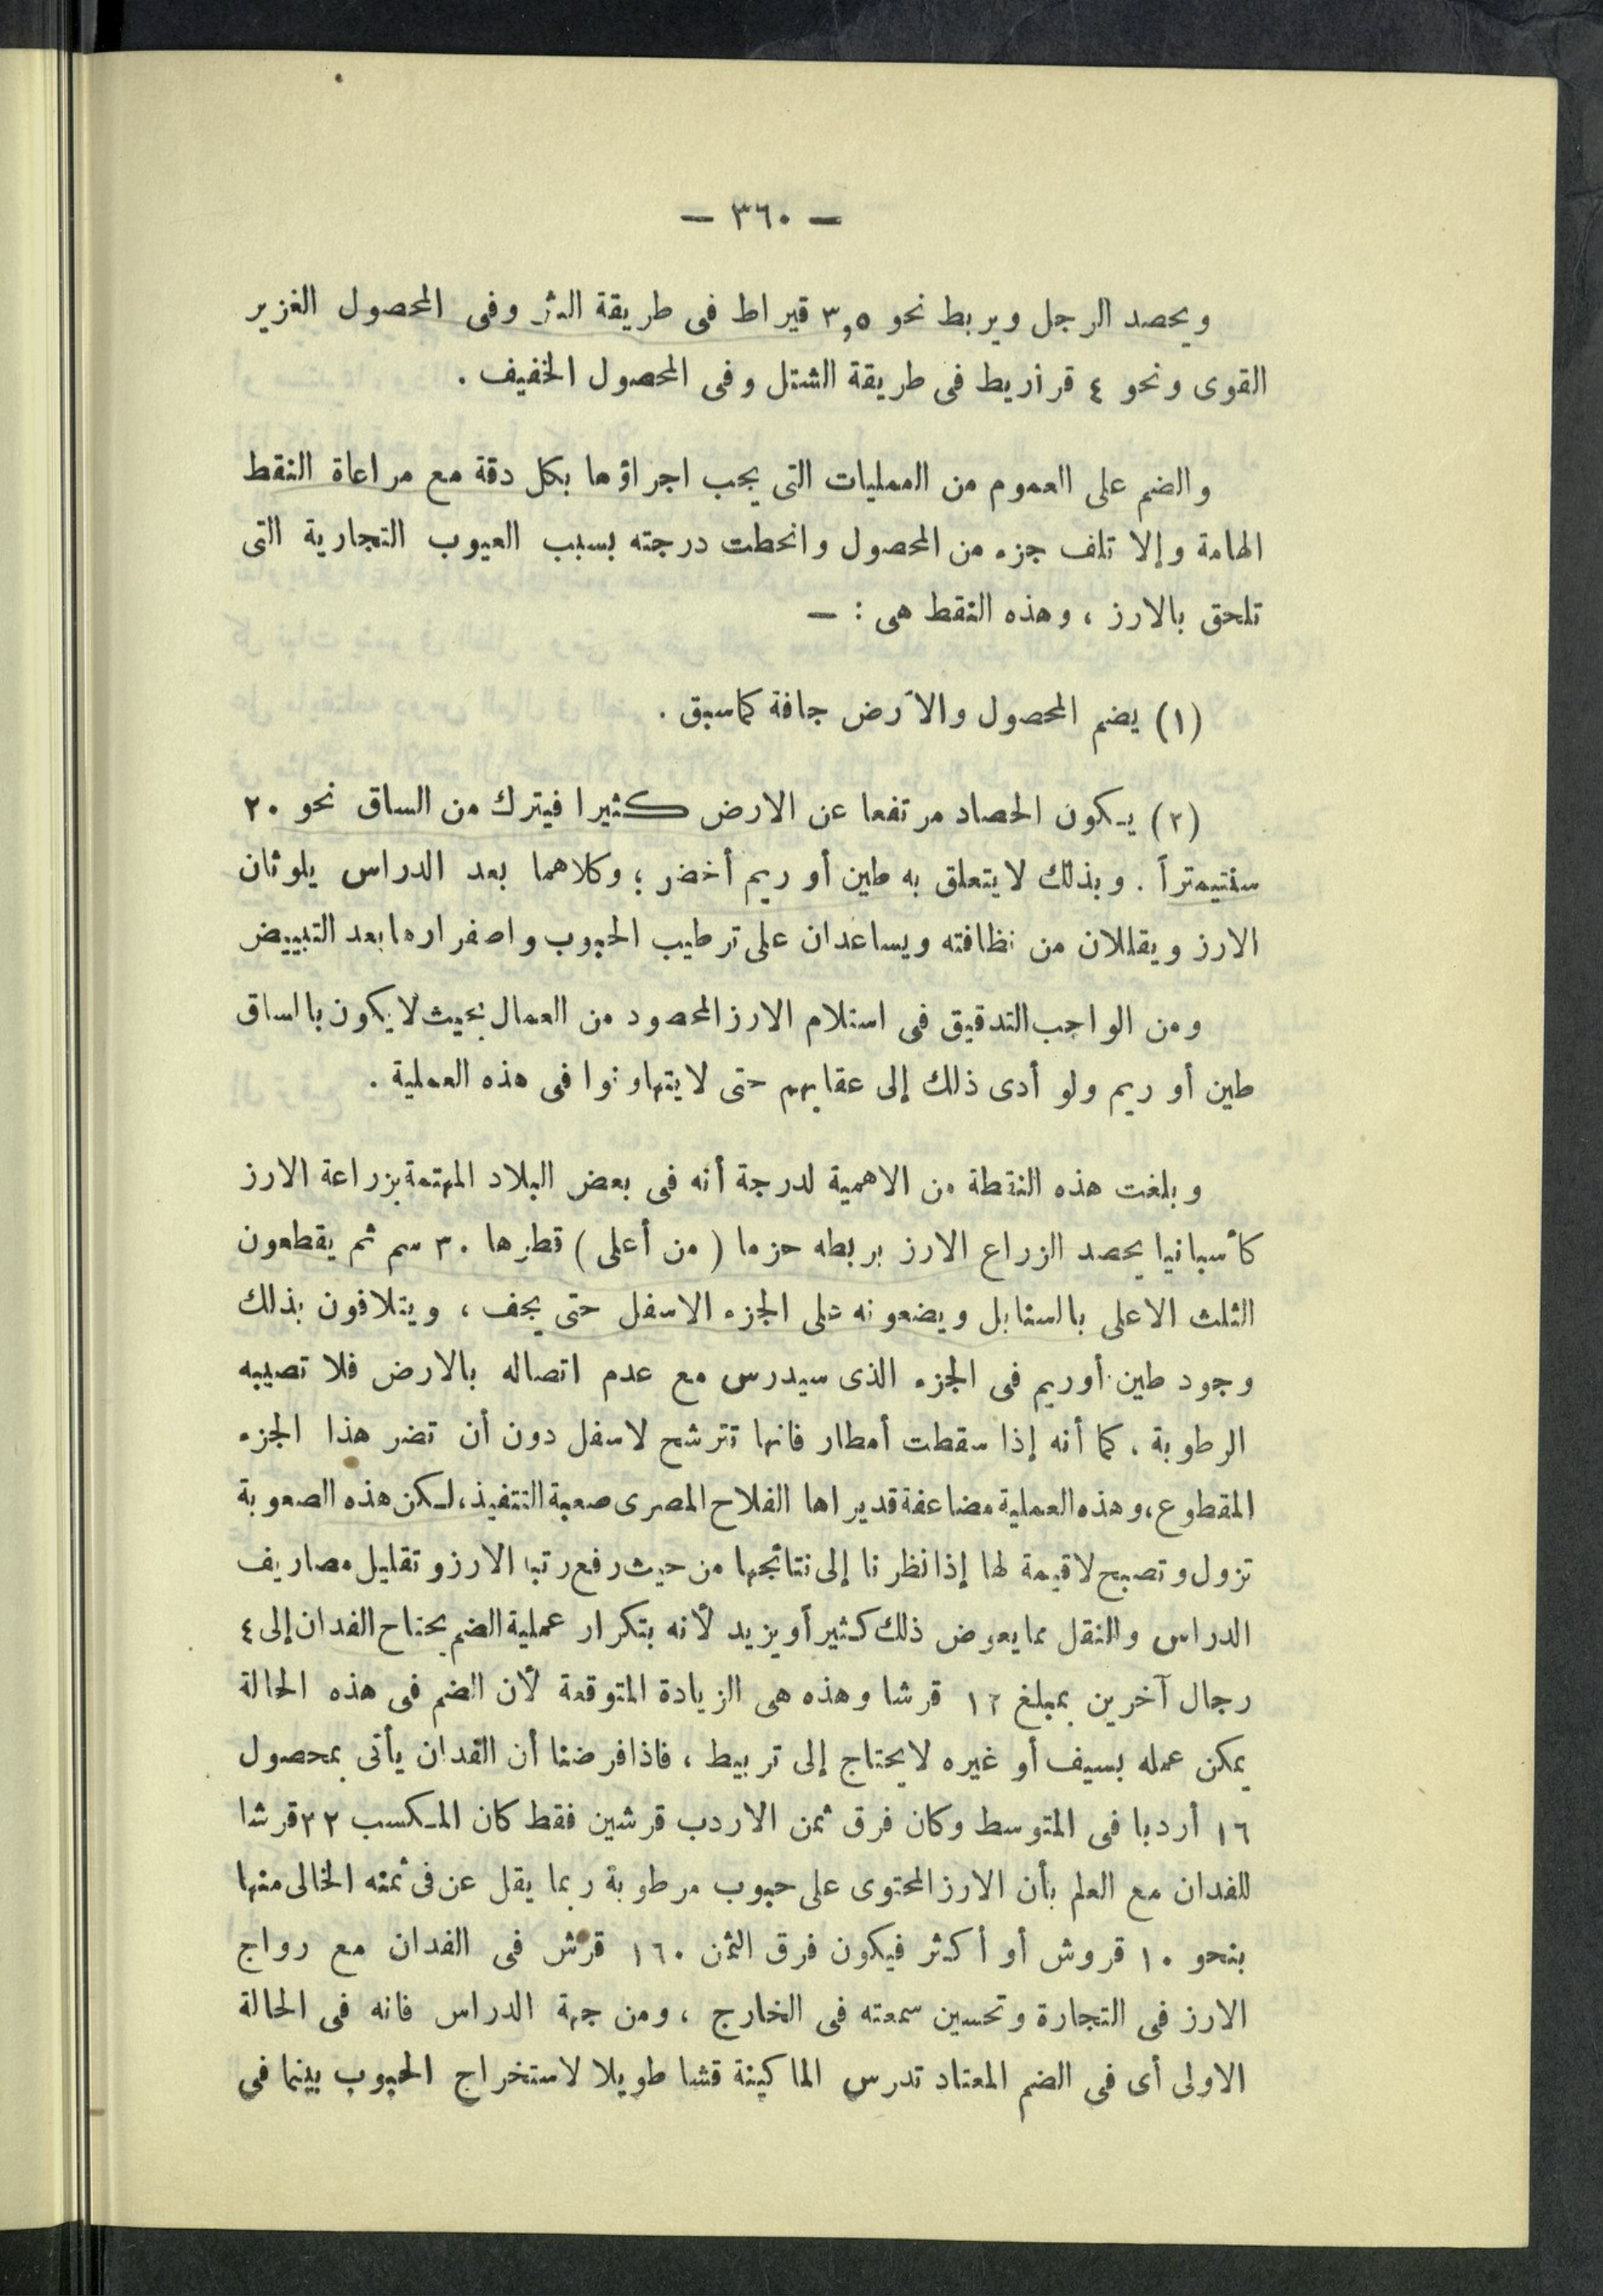 — ٣٦٠ —
ويحصد الرجل ويربط نحو ٣,٥ قيراط فى طريقة النثر وفى المحصول الغزير
القوى ونحو ٤ قراريط فى طريقة الشتل وفى المحصول الخفيف .
والضم على العموم من العمليات التى يجب اجراؤها بكل دقة مع مراعاة النقط
الهامة وإلا تلف جزء من المحصول وانحطت درجته بسبب العيوب التجارية التى
تلحق بالارز ، وهذه النقط هى : —
(١) يضم المحصول والأرض جافة كما سبق .
(٢) يكون الحصاد مرتفعا عن الارض كثيرا فيترك من الساق نحو ٢٠
سنتيمتراً . وبذلك لا يتعلق به طين أو ريم أخضر ؛ وكلاهما بعد الدراس يلوثان
الارز ويقللان من نظافته ويساعدان على ترطيب الحبوب واصفرارها بعد التبييض
ومن الواجب التدقيق فى استلام الارز المحصود من العمال بحيث لا يكون بالساق
طين أو ريم ولو أدى ذلك إلى عقابهم حتى لا يتهاونوا فى هذه العملية .
وبلغت هذه النقطة من الاهمية لدرجة أنه فى بعض البلاد المهتمة بزراعة الارز
كأسبانيا يحصد الزراع الارز بربطه حزما ( من أعلى ) قطرها ٣٠ سم ثم يقطعون
الثلث الاعلى بالسنابل ويضعونه على الجزء الاسفل حتى يجف ، ويتلافون بذلك
وجود طين أوريم فى الجزء الذى سيدرس مع عدم اتصاله بالارض فلا تصيبه
الرطوبة ، كما أنه إذا سقطت أمطار فانها تترشح لاسفل دون أن تضر هذا الجزء
المقطوع ، وهذه العملية مضاعفة قد يراها الفلاح المصرى صعبة التنفيذ ، لكن هذه الصعوبة
تزول وتصبح لا قيمة لها إذا نظرنا إلى نتائجها من حيث رفع رتبة الارز وتقليل مصاريف
الدراس والنقل مما يعوض ذلك كثيراً ويزيد لأنه بتكرار عملية الضم يحتاج الفدان إلى ٤
رجال آخرين بمبلغ ١٦ قرشا وهذه هى الزيادة المتوقعة لأن الضم فى هذه الحالة
يمكن عمله بسيف أو غيره لا يحتاج إلى تربيط ، فاذا فرضنا أن الفدان يأتى بمحصول
١٦ أردبا فى المتوسط وكان فرق ثمن الاردب قرشين فقط كان المكسب ٣٢ قرشا
للفدان مع العلم بأن الارز المحتوى على حبوب مرطوبة ربما يقل عن فى ثمنه الخالى منها
بنحو ١٠ قروش أو أكثر فيكون فرق الثمن ١٦٠ قرش فى الفدان مع رواج
الارز فى التجارة وتحسين سمعته فى الخارج ، ومن جهة الدراس فانه فى الحالة
الاولى أى فى الضم المعتاد تدرس الماكينة قشا طويلا لاستخراج الحبوب بينما فى